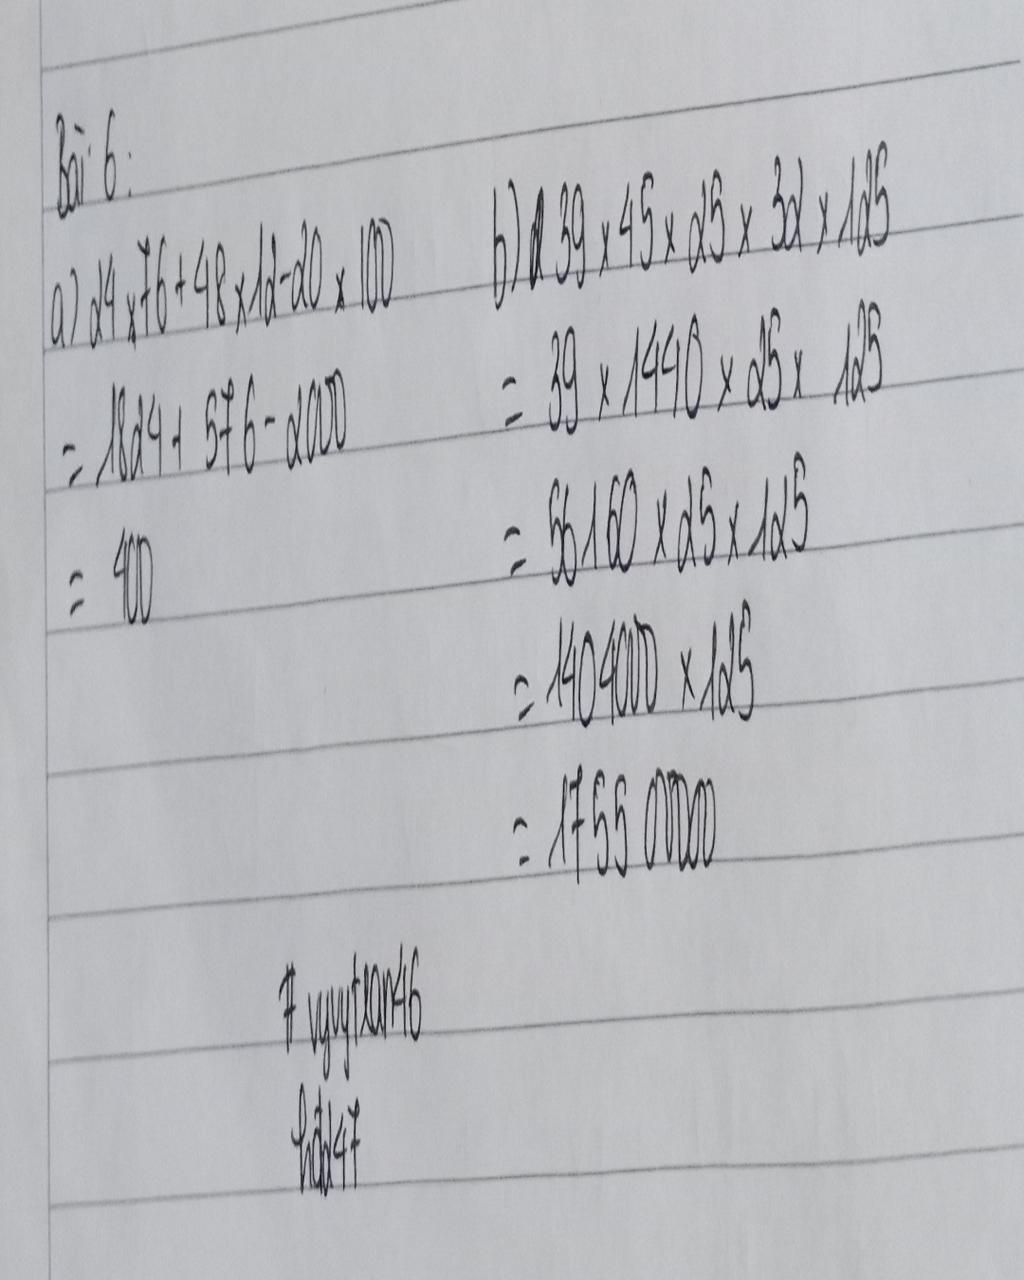 Bài 6:
a) 24 x 76 + 48 x 12 - 20 x 100
= 1824 + 576 - 2000
= 400
b) 39 x 45 x 25 x 32 x 125
= 39 x 1440 x 25 x 125
= 56160 x 25 x 125
= 1404000 x 125
= 175500000
# vyvytran46
hdd47